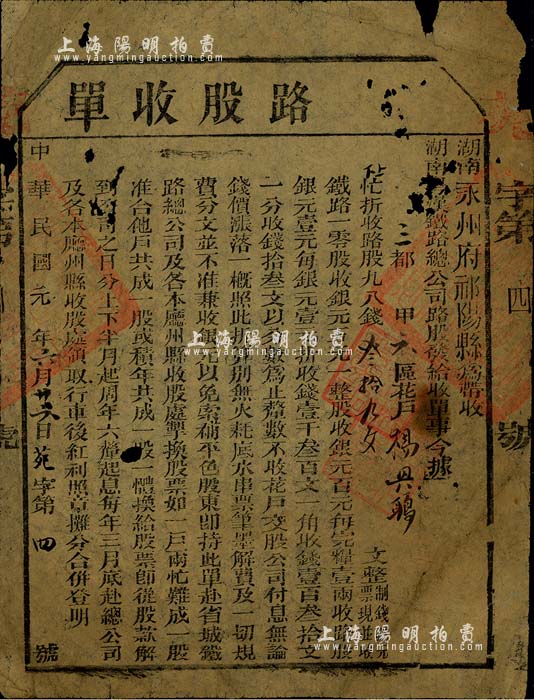 上海陽明拍賣
www.yangmingauction.com
路股收單
湖南永州府祁陽縣為帶收
湖南漢鐵路總公司路股發給收單事今據
三都 甲 區花戶楊
忙折收路股九八錢叁拾九文 文整制錢
鐵路一零股收銀元 元一整股收銀元百元每完糧壹兩收路股
銀元壹元每銀元壹 收錢壹千叁百文一角收錢壹百叁拾文
一分收錢拾叁文以 數為止幣數不收花戶交股公司付息無論
錢價漲落一概照此 別無火耗底水串票筆墨解費及一切規
費分文並不准兼收 以免索補平色股東即持此單赴省城鐵
路總公司及各本廳州縣收股處掣換股票如一戶兩忙難成一股
准合他戶共成一股或積年共成一股一體換給股票即從股款解
到 司之日分上下半月起周年六釐起息每年三月底赴總公司
及各本廳州縣收股處領取行車後紅利照章攤分合併登明
中華民國元年六月廿 日苑字第四號
字第四號
上海陽明拍賣
www.yangmingauction.com
上海陽明拍賣
www.yangmingauction.com